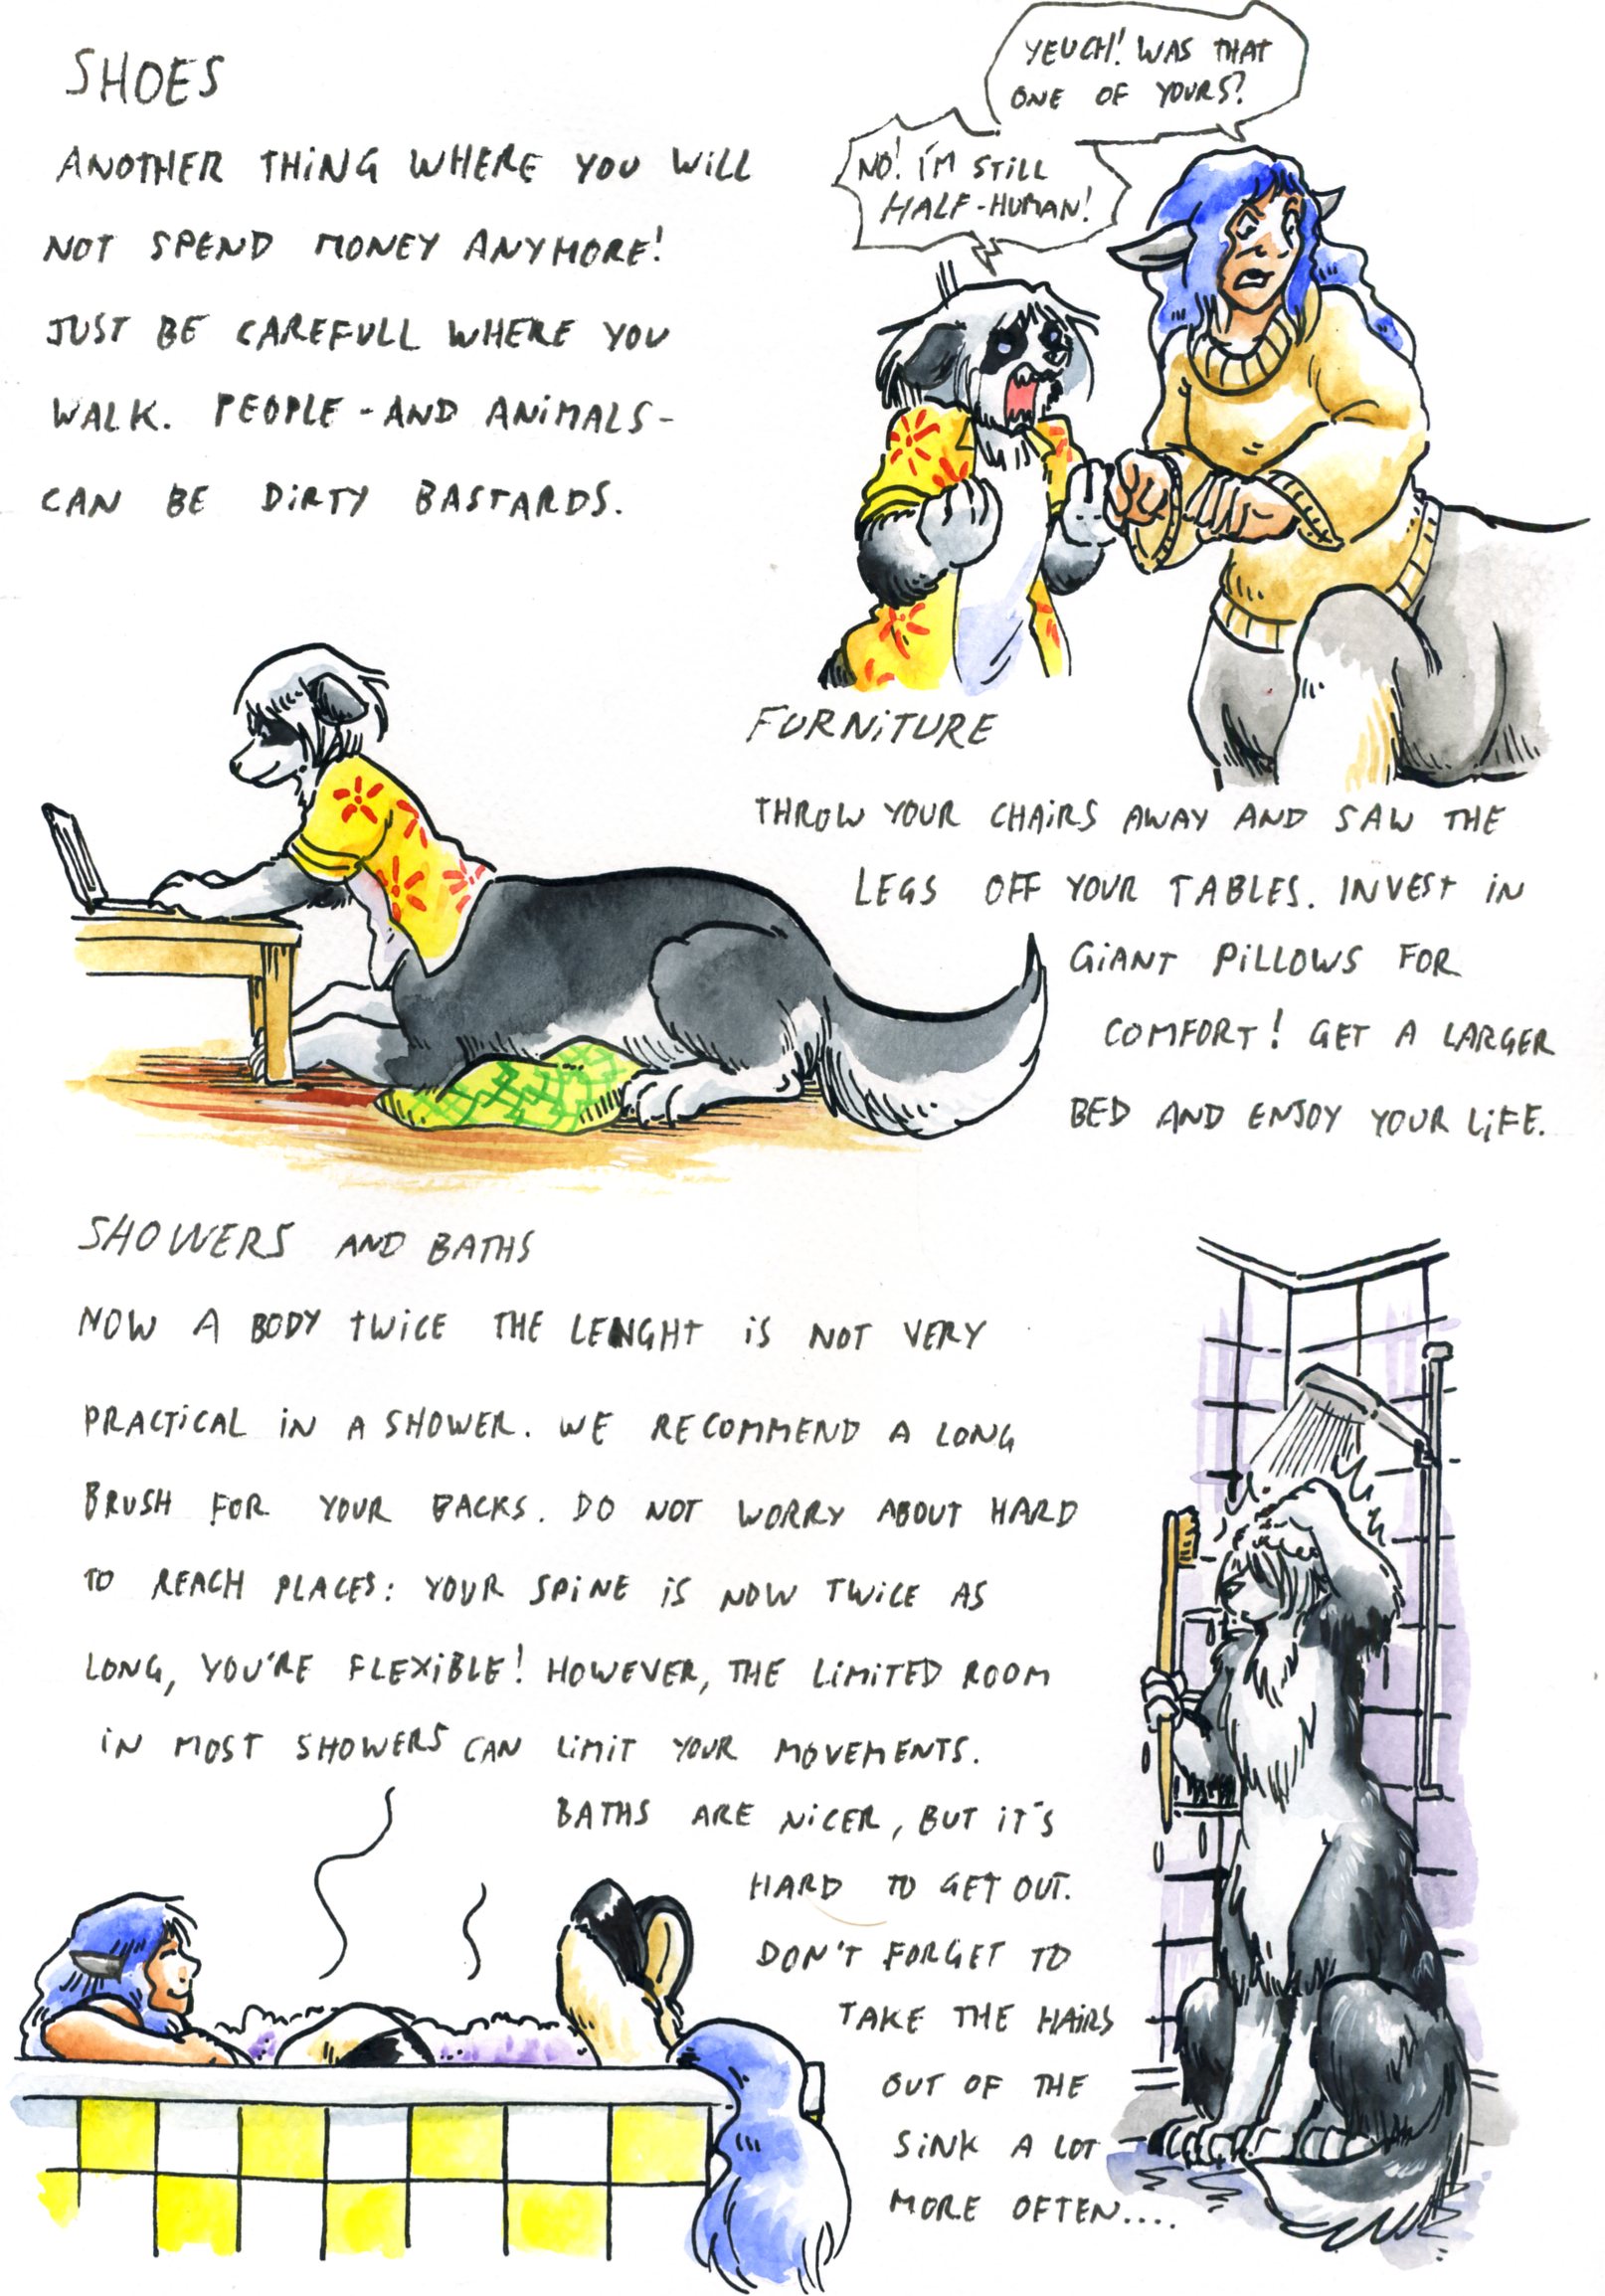 SHOES
ANOTHER THING WHERE YOU WILL
NOT SPEND MONEY ANYMORE!
JUST BE CAREFULL WHERE YOU
WALK. PEOPLE - AND ANIMALS -
CAN BE DIRTY BASTARDS.
YEUCH! WAS THAT
ONE OF YOURS?
NO! I'M STILL
HALF-HUMAN!
FURNITURE
THROW YOUR CHAIRS AWAY AND SAW THE
LEGS OFF YOUR TABLES. INVEST IN
GIANT PILLOWS FOR
COMFORT! GET A LARGER
BED AND ENJOY YOUR LIFE.
SHOWERS AND BATHS
NOW A BODY TWICE THE LENGHT IS NOT VERY
PRACTICAL IN A SHOWER. WE RECOMMEND A LONG
BRUSH FOR YOUR BACKS. DO NOT WORRY ABOUT HARD
TO REACH PLACES: YOUR SPINE IS NOW TWICE AS
LONG, YOU'RE FLEXIBLE! HOWEVER, THE LIMITED ROOM
IN MOST SHOWERS CAN LIMIT YOUR MOVEMENTS.
BATHS ARE NICER, BUT IT'S
HARD TO GET OUT.
DON'T FORGET TO
TAKE THE HAIRS
OUT OF THE
SINK A LOT
MORE OFTEN....